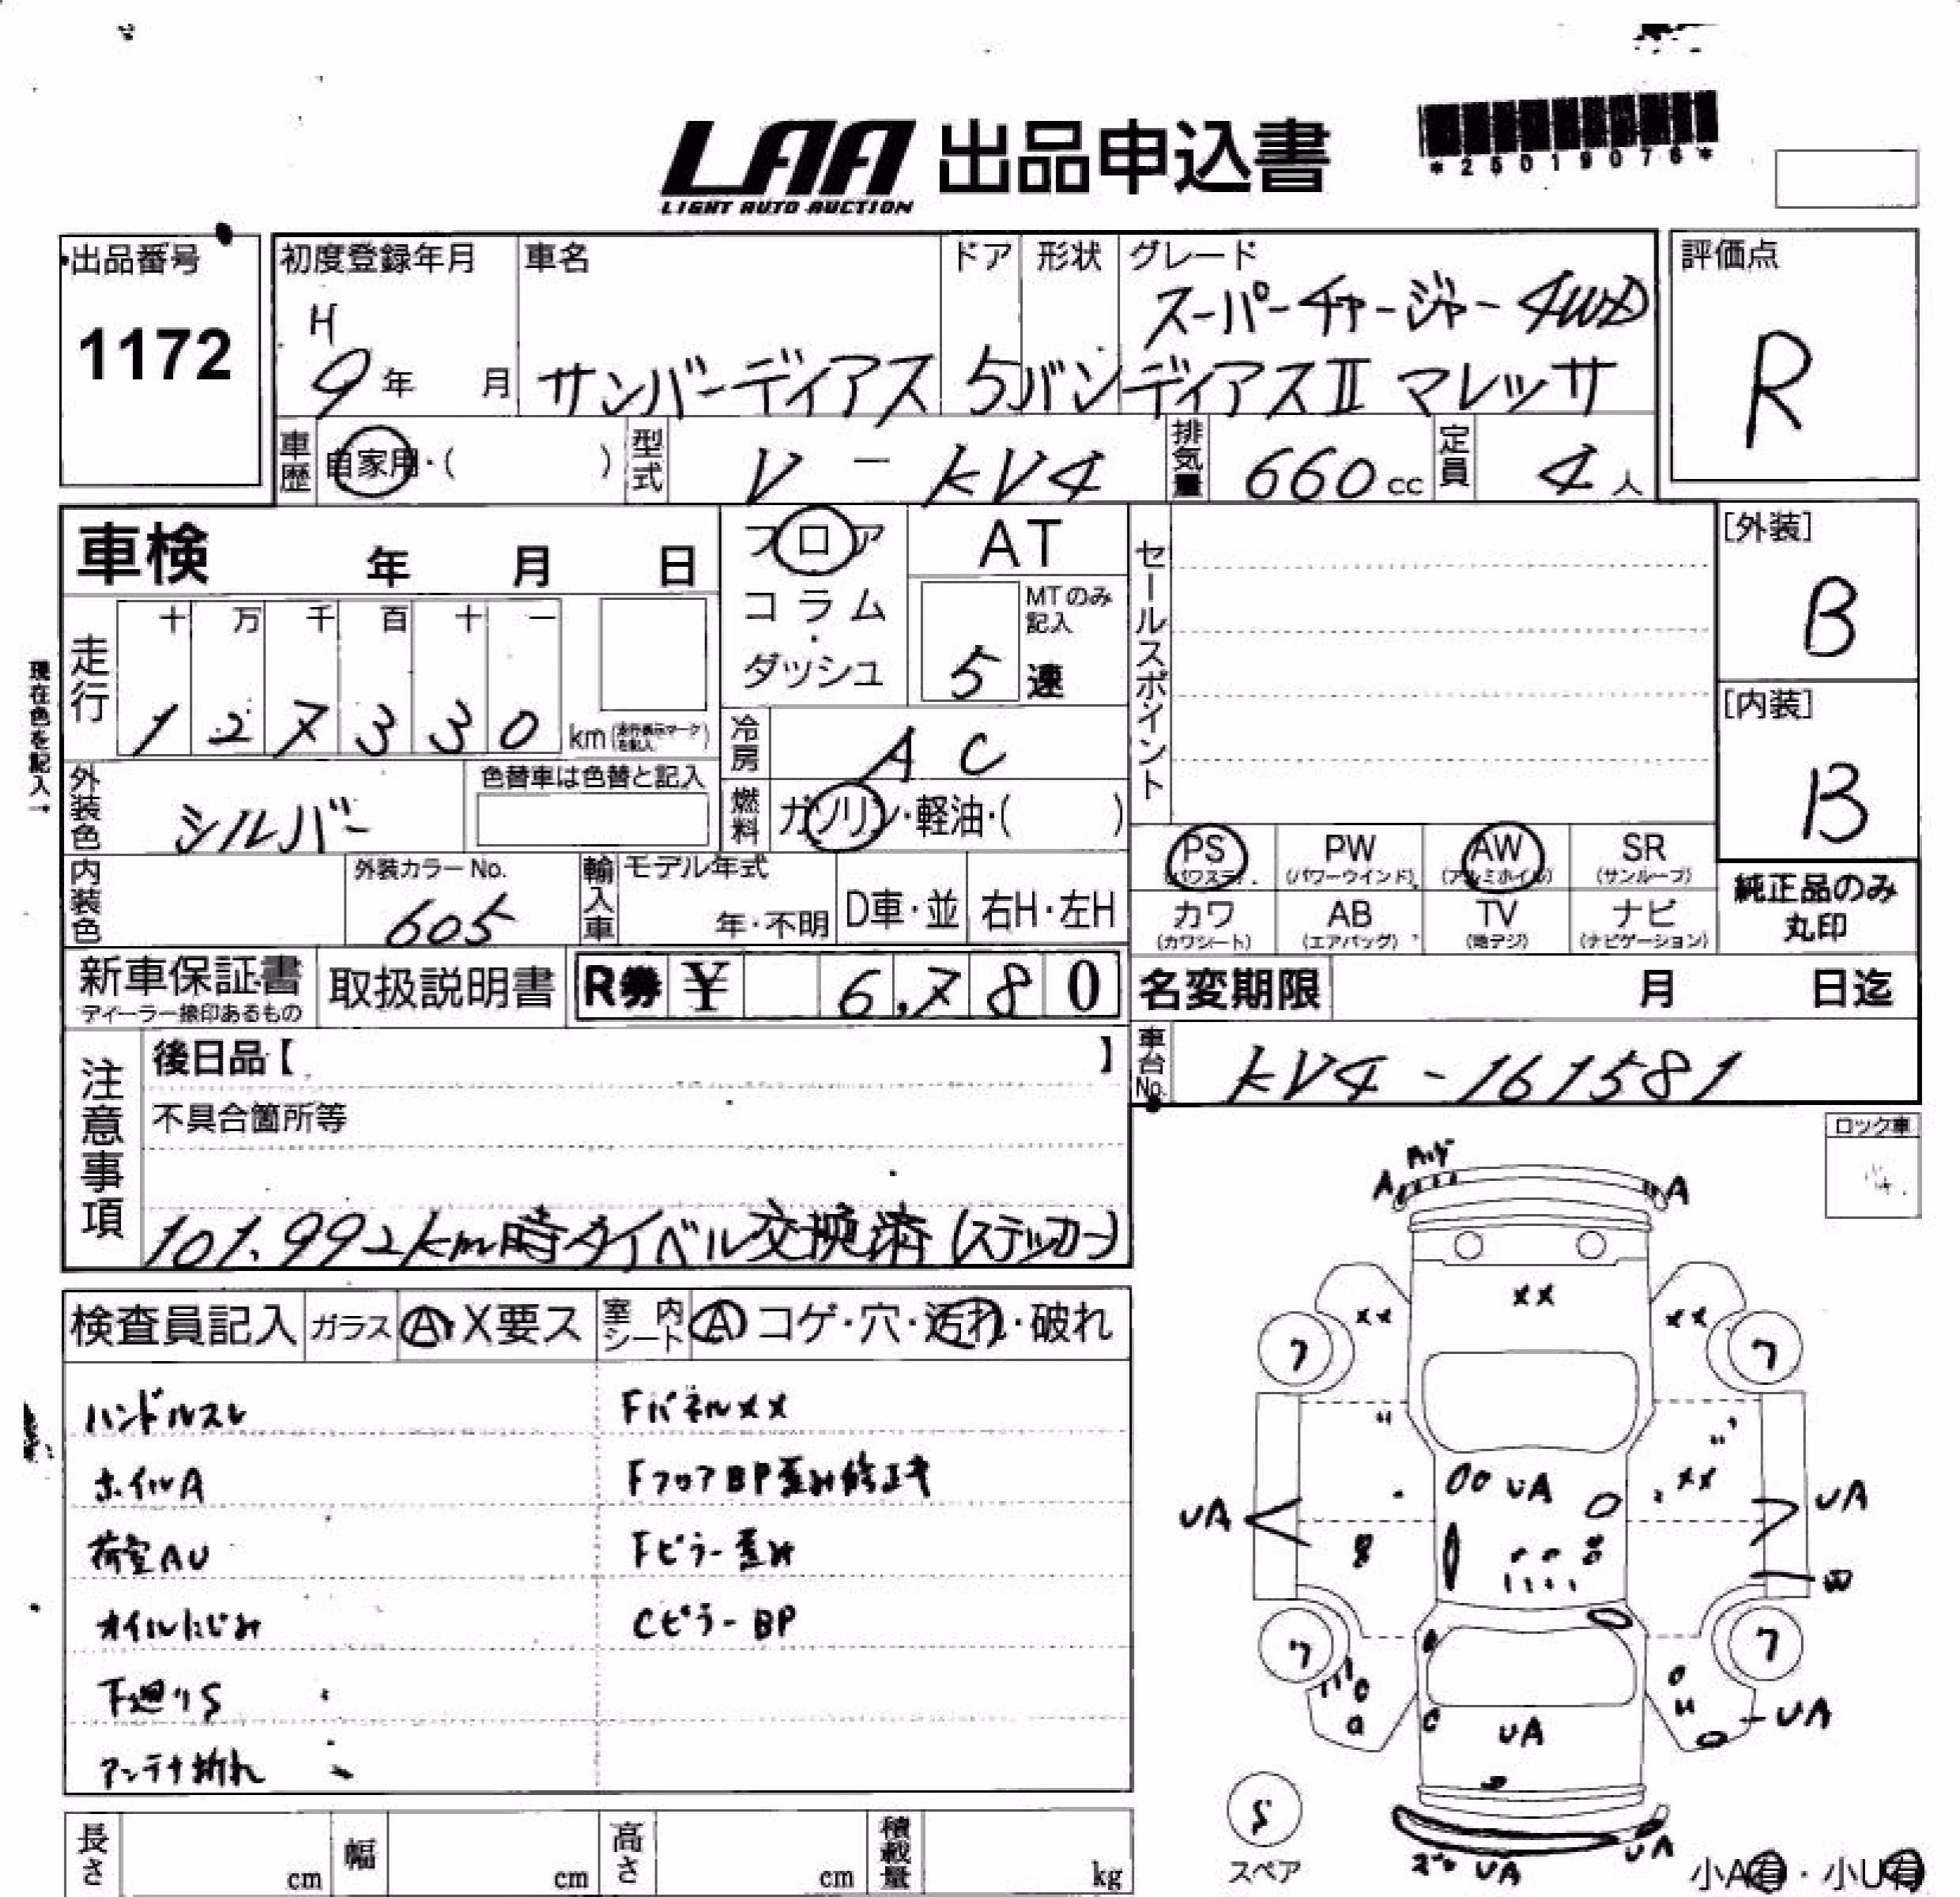 LAA 出品申込書
LIGHT AUTO AUCTION
*25019076*
出品番号
1172
初度登録年月
H
9年 月
車名
サンバーディアス
ドア
5
形状
バン
グレード
スーパーチャージャー4WD
ディアスⅡ マレッサ
評価点
R
車歴 自家用・( )
型式 V - KV4
排気量 660 cc
定員 4 人
車検 年 月 日
フロア
コラム
・
ダッシュ
AT
MTのみ
記入
5 速
セールスポイント
[外装]
B
[内装]
B
現在色を記入→
走行
十 万 千 百 十 一
1 2 7 3 3 0 km (走行表示マークを記入)
冷房 AC
燃料 ガソリン・軽油・( )
外装色 シルバー
色替車は色替と記入
内装色
外装カラーNo.
605
輸入車
モデル年式
年・不明
D車・並
右H・左H
PS
(パワステ)
PW
(パワーウインド)
AW
(アルミホイル)
SR
(サンルーフ)
カワ
(カワシート)
AB
(エアバッグ)
TV
(地デジ)
ナビ
(ナビゲーション)
純正品のみ
丸印
新車保証書
ディーラー捺印あるもの
取扱説明書
R券 ¥ 6,780
名変期限 月 日迄
車台No. KV4-161581
注意事項
後日品【 】
不具合箇所等
101,992km時タイベル交換済(ステッカー)
ロック車
検査員記入
ガラス A・X要ス
室内シート A コゲ・穴・汚れ・破れ
ハンドルスレ
FパネルXX
ホイルA
FフロアBP歪み修正キ
荷室AU
Fピラー歪み
オイルにじみ
CピラーBP
下廻りS
アンテナ折れ
A
A
XX
XX
XX
ワ
ワ
XX
UA
UA
UA
UA
W
ワ
ワ
UA
UA
S
スペア
UA
UA
小A有・小U有
長さ cm
幅 cm
高さ cm
積載量 kg